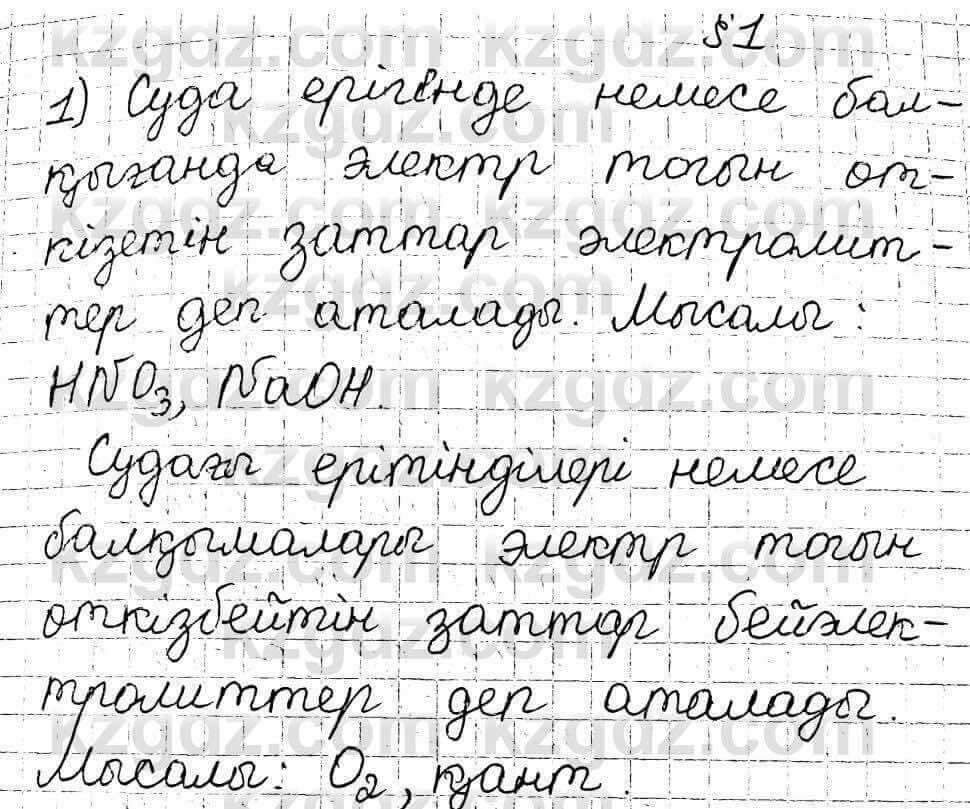 §1
1) Суда ерігенде немесе бал-
қыганда электр тогын от-
кізетін заттар электролит-
тер деп аталады. Мысалы:
HNO3, NaOH.
Судагы ерітінділері немесе
балқымалары электр тогын
откізбейтін заттар бейэлек-
тролиттер деп аталады.
Мысалы: O2, қант.
kzgdz.com